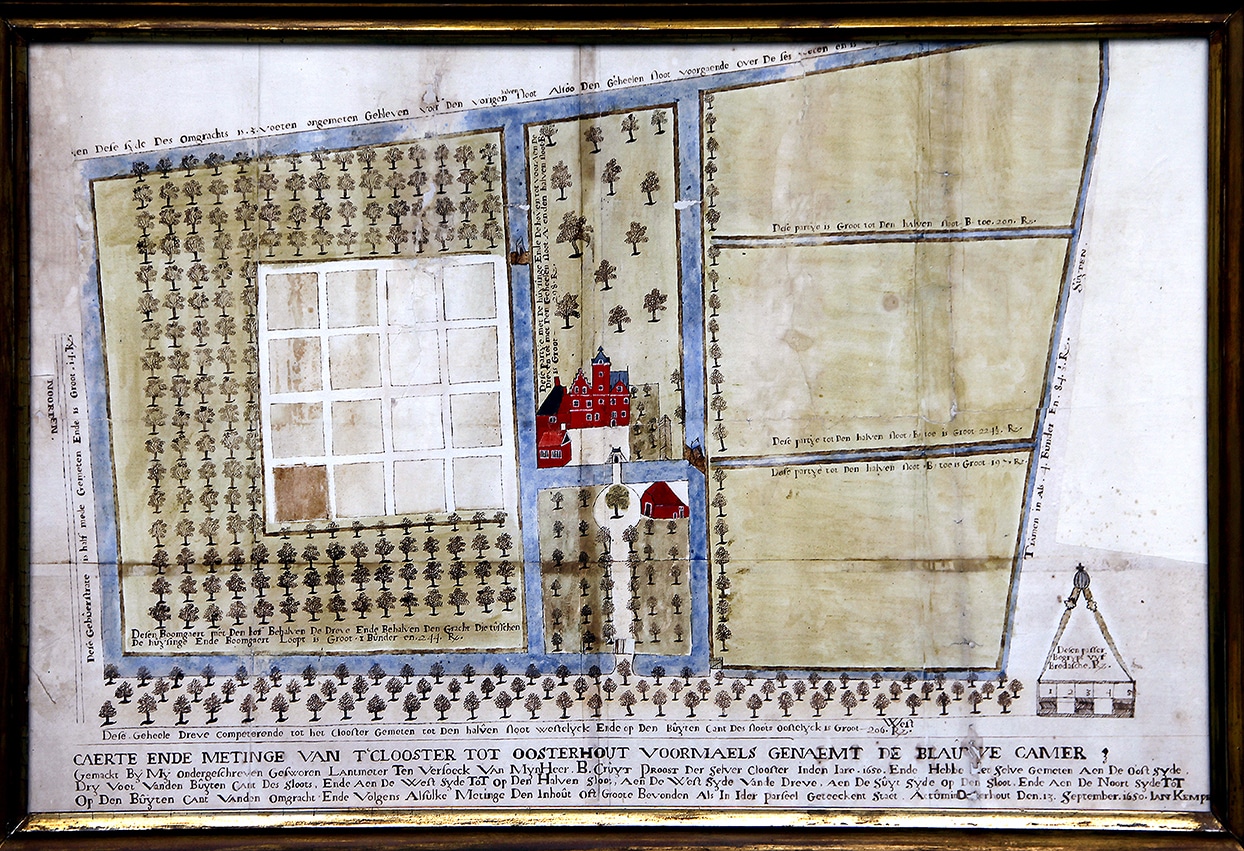 en Dese syde Des Omgrachts is .3. voeten ongemeten Gebleven voer Den vorigen halven sloot Alsoo Den Geheelen sloot voorgaende Over De ses voeten en
Dese partye met De huysinge Ende De hoven tot
Dreven tot met Den Geheelen sloot A. ende Den halven sloot B
is Groot 298. Rs.
Dese partye is Groot tot Den halven sloot B. toe. 209. Rs.
Suyten.
NOORTEN.
Dese Gebuerstrate is half mede Gemeten Ende is Groot . 14. Rs.
Dese partye tot Den halven sloot . B. toe is Groot 224½. Rs.
Dese partye tot Den halven sloot . B. toe is Groot 19 . Rs.
Tsamen in Als .4. Bunder En .84.½. Rs.
Desen Boomgaert met Den hof Behalven De Dreve Ende Behalven Den Gracht Die tusschen
De huysinge Ende Boomgaert Loopt is Groot .1 Bunder en .244. Rs.
Desen passer
Begrypt vyf
Bredasche. Rs.
1 2 3 4 5
West
Dese Geheele Dreve Competerende tot het Clooster Gemeten tot Den halven sloot westelyck Ende op Den Buyten Cant Des sloots oostelyck is Groot 206. Rs.
CAERTE ENDE METINGE VAN T'CLOOSTER TOT OOSTERHOUT VOORMAELS GENAEMT DE BLAUWE CAMER ;
Gemackt By My ondergeschreven Gesworen Lantmeter Ten Versoeck Van Mynheer. B. Cruyt Proost Der Selver Clooster Inden Iare .1650. Ende Hebbe Selve Gemeten Aen De Oost Syde.
Dry Voet Vanden Buyten Cant Des Sloots, Ende Aen De West Syde Tot op Den Halven Sloot, Aen De West Syde Van de Dreve, Aen De Suyt Syde op Den Sloot. Ende Aen De Noort Syde Tot
Op Den Buyten Cant Vanden Omgracht Ende Volgens Alsulke Metinge Den Inhout Oft Groote Bevonden Als In Ider parseel Geteeckent Staet Actum Oosterhout Den .13. September .1650. Ian Kemp